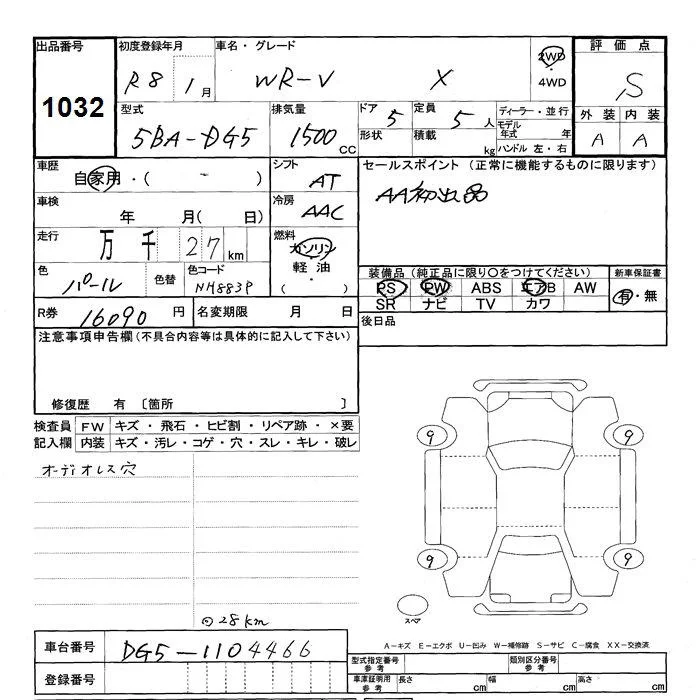 出品番号
1032
初度登録年月
R8 1月
車名・グレード
WR-V X
2WD
・
4WD
評価点
S
型式
5BA-DG5
排気量
1500 CC
ドア 5
形状
定員 5人
積載 kg
ディーラー・並行
モデル年式 年
ハンドル 左・右
外装 内装
A A
車歴
自家用・( - )
シフト
AT
セールスポイント (正常に機能するものに限ります)
AA初出品
車検
年 月( 日)
冷房
AAC
走行
万 千 27 km
燃料
ガソリン
軽油・
( )
色
パール
色替
色コード
NH883P
装備品 (純正品に限り○をつけてください)
PS PW ABS エアB AW
SR ナビ TV カワ
新車保証書
有・無
R券 16090 円
名変期限 月 日
後日品
注意事項申告欄 (不具合内容等は具体的に記入して下さい)
修復歴 有 〔箇所 〕
検査員 FW キズ・飛石・ヒビ割・リペア跡・×要
記入欄 内装 キズ・汚レ・コゲ・穴・スレ・キレ・破レ
オーディオレス穴
9 9
9 9
スペア
28km
A-キズ E-エクボ U-凹み W-補修跡 S-サビ C-腐食 XX-交換済
車台番号 DG5-1104466
登録番号
型式指定番号 参考
類別区分番号 参考
車庫証明用 参考 長さ cm 幅 cm 高さ cm